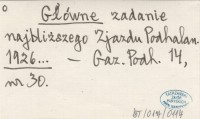 Główne zadanie
najbliższego Zjazdu Podhalan.
1926... — Gaz. Podh. 14,
nr. 30.